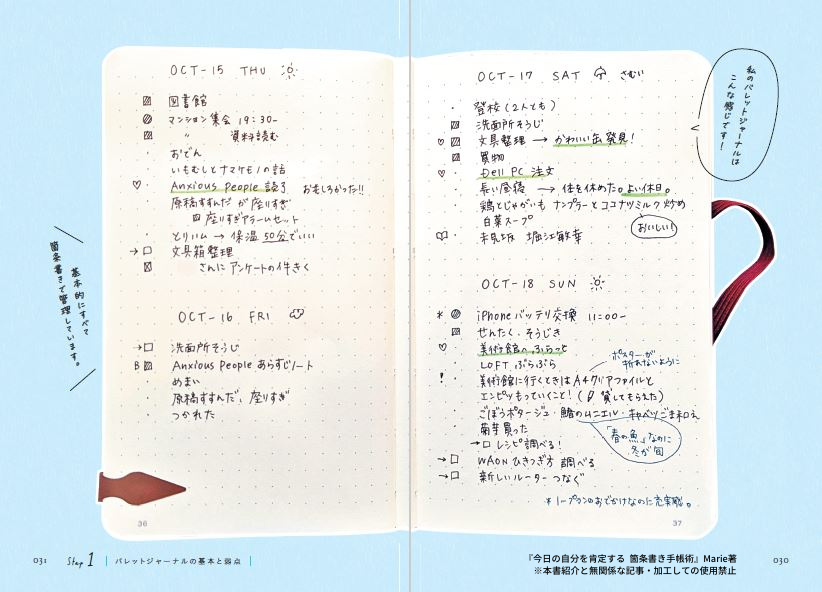 OCT-15 THU
図書館
マンション集会 19:30-
〃 資料読む
おでん
いもむしとナマケモノの話
Anxious People 読了 おもしろかった!!
原稿すすんだ が 座りすぎ
座りすぎアラームセット
とりハム → 保温 50分でいい
→ 文具箱整理
さんに アンケートの件きく
OCT-16 FRI
→ 洗面所そうじ
B Anxious People あらすじノート
めまい
原稿すすんだ、座りすぎ
つかれた
36
基本的にすべて
箇条書きで管理しています。
OCT-17 SAT さむい
登校 (2人とも)
洗面所そうじ
文具整理 → かわいい缶発見!
買物
Dell PC 注文
長い昼寝 → 体を休めた。よい休日。
鶏とじゃがいも ナンプラーとココナツミルク炒め
白菜スープ
おいしい!
未見坂 堀江敏幸
OCT-18 SUN
* iPhone バッテリ交換 11:00-
せんたく、そうじき
美術館へ ぶらっと
LOFT ぶらぶら
ポスターが
折れないように
! 美術館に行くときは A4クリアファイルと
エンピツもっていくこと! ( 貸してもらえた)
ごぼうポタージュ・鰆のムニエル・キャベツごま和え
菊芋買った
「春の魚」なのに
冬が旬
→ レシピ調べる!
→ WAON ひきつぎ方 調べる
→ 新しいルーター つなぐ
* ノープランのおでかけなのに充実感。
37
私のバレットジャーナルは
こんな感じです!
031 Step 1 バレットジャーナルの基本と弱点
『今日の自分を肯定する 箇条書き手帳術』Marie著
※本書紹介と無関係な記事・加工しての使用禁止
030